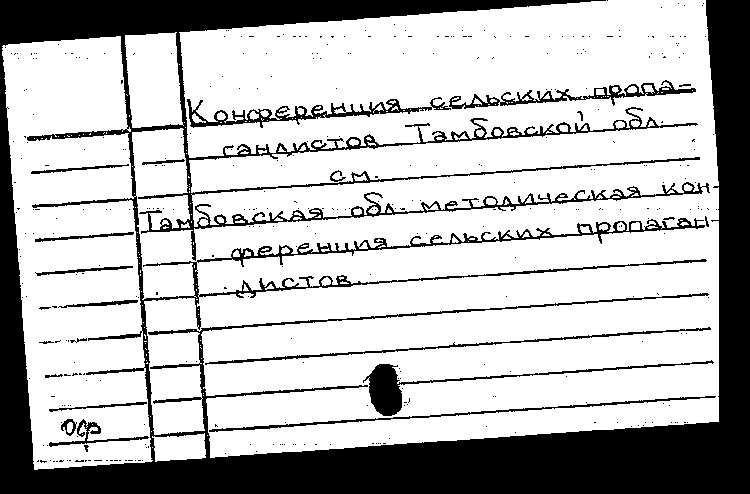 Конференция сельских пропа-
гандистов Тамбовской обл.
см.
Тамбовская обл. методическая кон-
ференция сельских пропаган-
дистов.